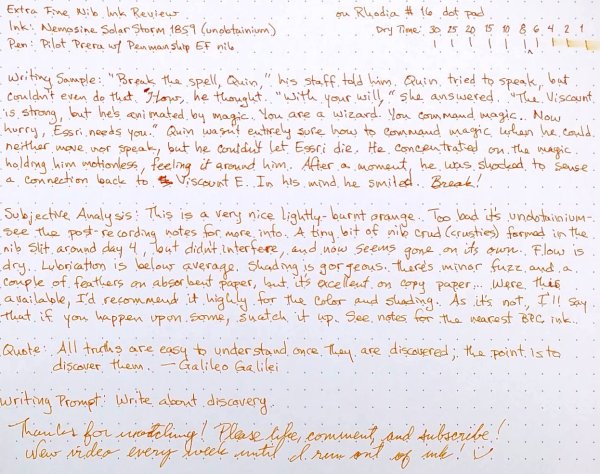 Extra Fine Nib Ink Review on Rhodia #16 dot pad
Ink: Nemosine Solar Storm 1859 (unobtainium) Dry Time: 30 25 20 15 10 8 6 4 2 1
Pen: Pilot Prera w/ Penmanship EF nib
Writing Sample: "Break the spell, Quin," his staff told him. Quin tried to speak, but
couldn't even do that. How, he thought. "With your will," she answered. "The Viscount
is strong, but he's animated by magic. You are a wizard. You command magic. Now
hurry, Essri needs you." Quin wasn't entirely sure how to command magic when he could
neither move nor speak, but he couldn't let Essri die. He concentrated on the magic
holding him motionless, feeling it around him. After a moment, he was shocked to sense
a connection back to Viscount E. In his mind he smiled. Break!
Subjective Analysis: This is a very nice lightly-burnt orange. Too bad it's unobtainium-
see the post-recording notes for more info. A tiny bit of nib crud (crusties) formed in the
nib slit around day 4, but didn't interfere, and now seems gone on its own. Flow is
dry. Lubrication is below average. Shading is gorgeous. There's minor fuzz and a
couple of feathers on absorbent paper, but it's excellent on copy paper. Were this
available, I'd recommend it highly for the color and shading. As it's not, I'll say
that if you happen upon some, snatch it up. See notes for the nearest BPC ink.
Quote: All truths are easy to understand once they are discovered; the point is to
discover them. — Galileo Galilei
Writing Prompt: Write about discovery.
Thanks for watching! Please like, comment, and subscribe!
New video every week until I run out of ink!